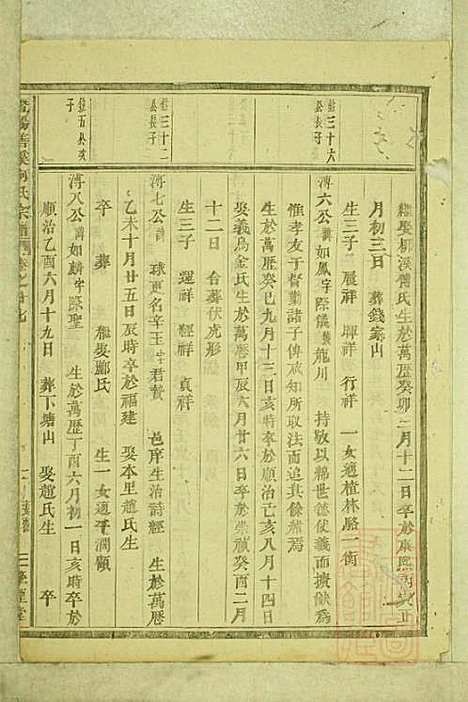 繼娶柳溪傅氏生於萬歷癸卯二月十二日卒於康熙丙寅正
月初三日 葬錢家山
生三子 展祥 暉祥 行祥 一女適植林駱一衡
鉉三十六公長子
溥六公諱如鳳字際儀號龍川 持敬以綿世德使義而擴猷為
惟孝友于督勤諸子俾咸知所取法而追其餘緒焉
生於萬歷己巳九月十三日亥時卒於順治己亥八月十四日
娶義烏金氏生於萬歷甲辰六月廿六日卒於崇禎癸酉二月
十二日 合葬伏虎形
生三子 運祥 經祥 貞祥
鉉三十二公長子
溥七公諱 球更名辛王字君贊 邑庠生治詩經 生於萬歷
乙未十月廿五日辰時卒於福建 娶本里趙氏生
卒 葬 繼娶酈氏 生一女適平濶顧
鉉五公次子
溥八公諱如麟字際聖 生於萬歷丁酉六月初一日亥時卒於
順治乙酉六月十九日 葬下塘山 娶趙氏生 卒
氏宗譜